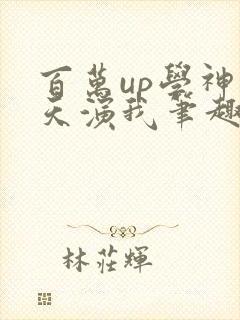 百萬up學神
天演我筆趣
林莊輝